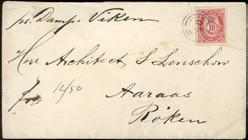 pr. Damp. Viken
Herr Architect S Lenschow
14/50
Aaraas
Röken
10